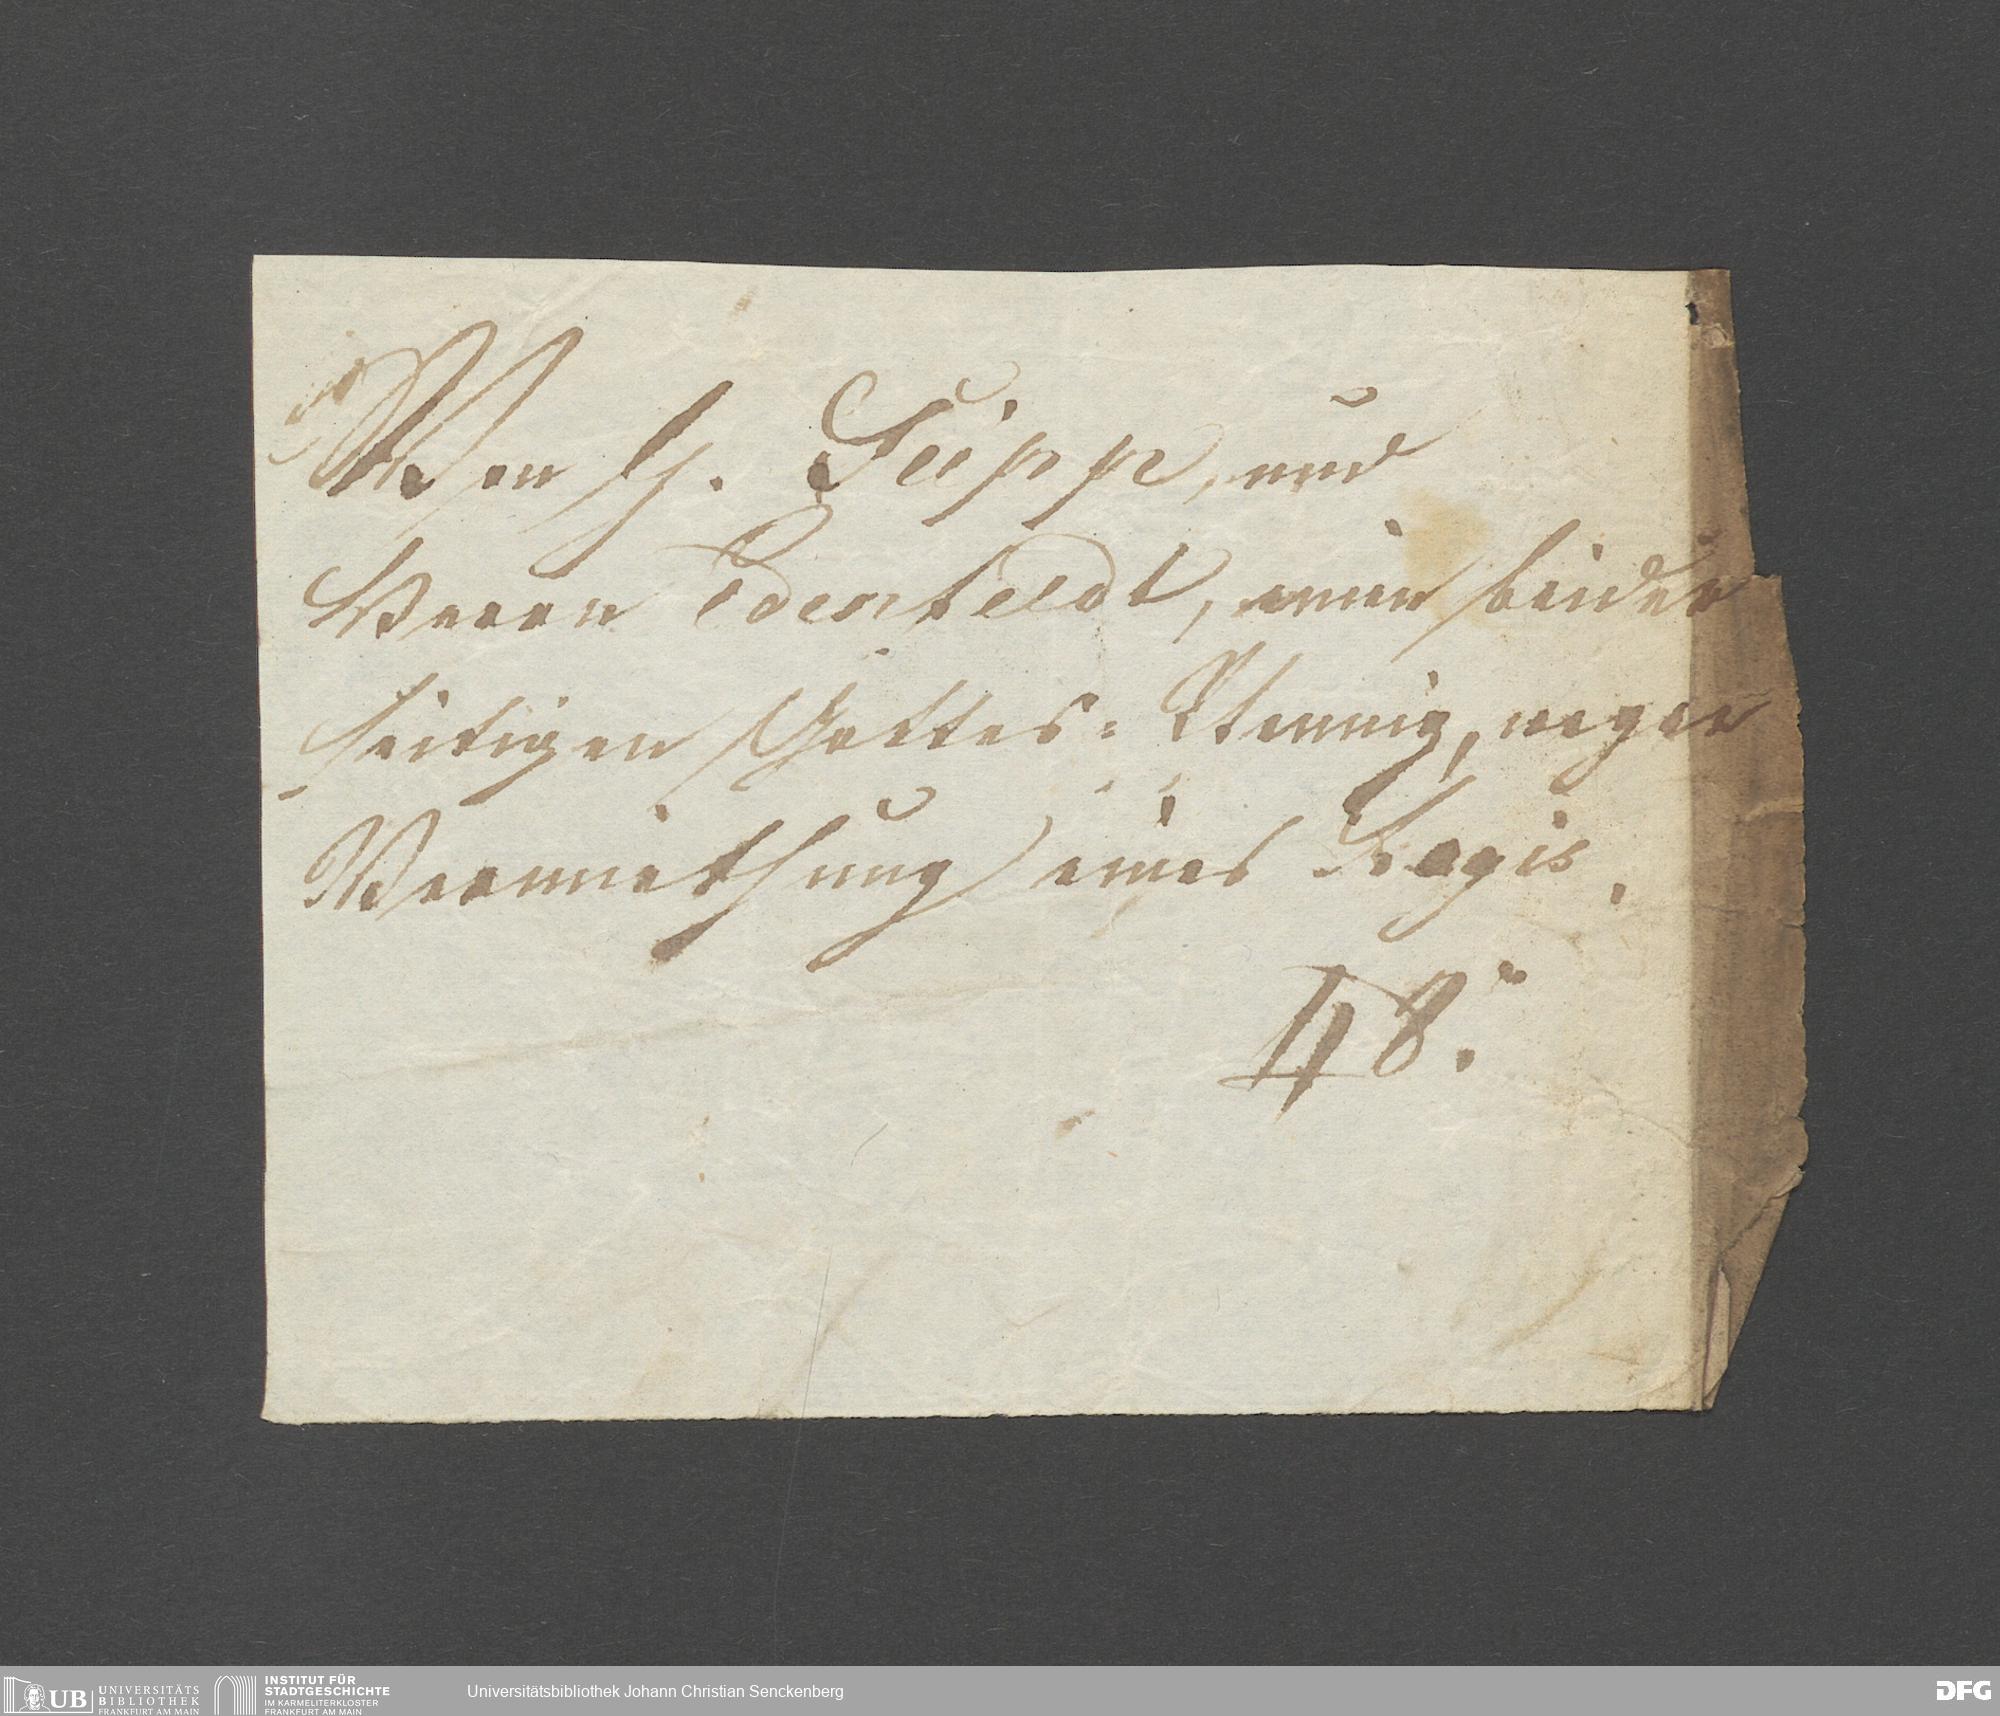 Von H. Supp, und
Herrn Edenfeldt, einen beider
seitigen Gottes: Pfennig, wegen
Vermiethung eines Logis.
48.
UB UNIVERSITÄTS
BIBLIOTHEK
FRANKFURT AM MAIN
INSTITUT FÜR
STADTGESCHICHTE
IM KARMELITERKLOSTER
FRANKFURT AM MAIN
Universitätsbibliothek Johann Christian Senckenberg
DFG